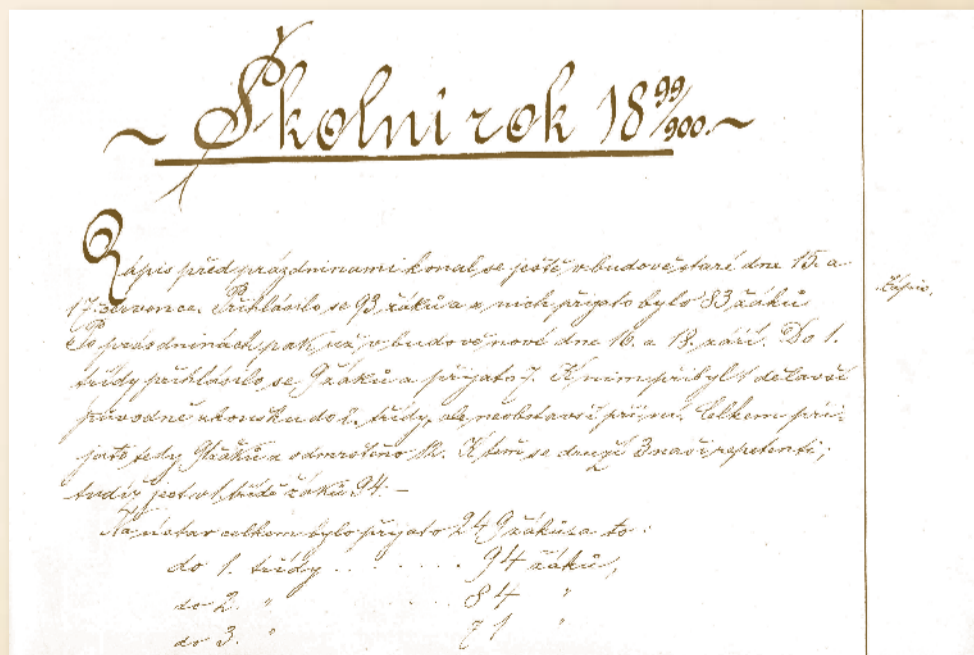 ~ Školní rok 18 99/900. ~
Zápis před prázdninami konal se ještě v budově staré dne 15. a
17. července. Přihlásilo se 93 žáků a z nich přijato bylo 83 žáků
Po prázdninách pak už v budově nové dne 16. a 18. září. Do 1.
třídy přihlásilo se 9 žáků a přijato 7. K nim přibyl 1 dělavší
původně zkoušku do 2. třídy, ale neobstavší při ní. Celkem při-
jato tedy 91 žáků a odmrštěno 12. K těm se druží 3 naši repetenti;
tudíž jest v 1. třídě žáků 94. –
Na ústav celkem bylo přijato 249 žáků a to:
do 1. třídy . . . . . . . 94 žáků,
do 2. " . . . 84 "
do 3. " 71 "
Zápis.